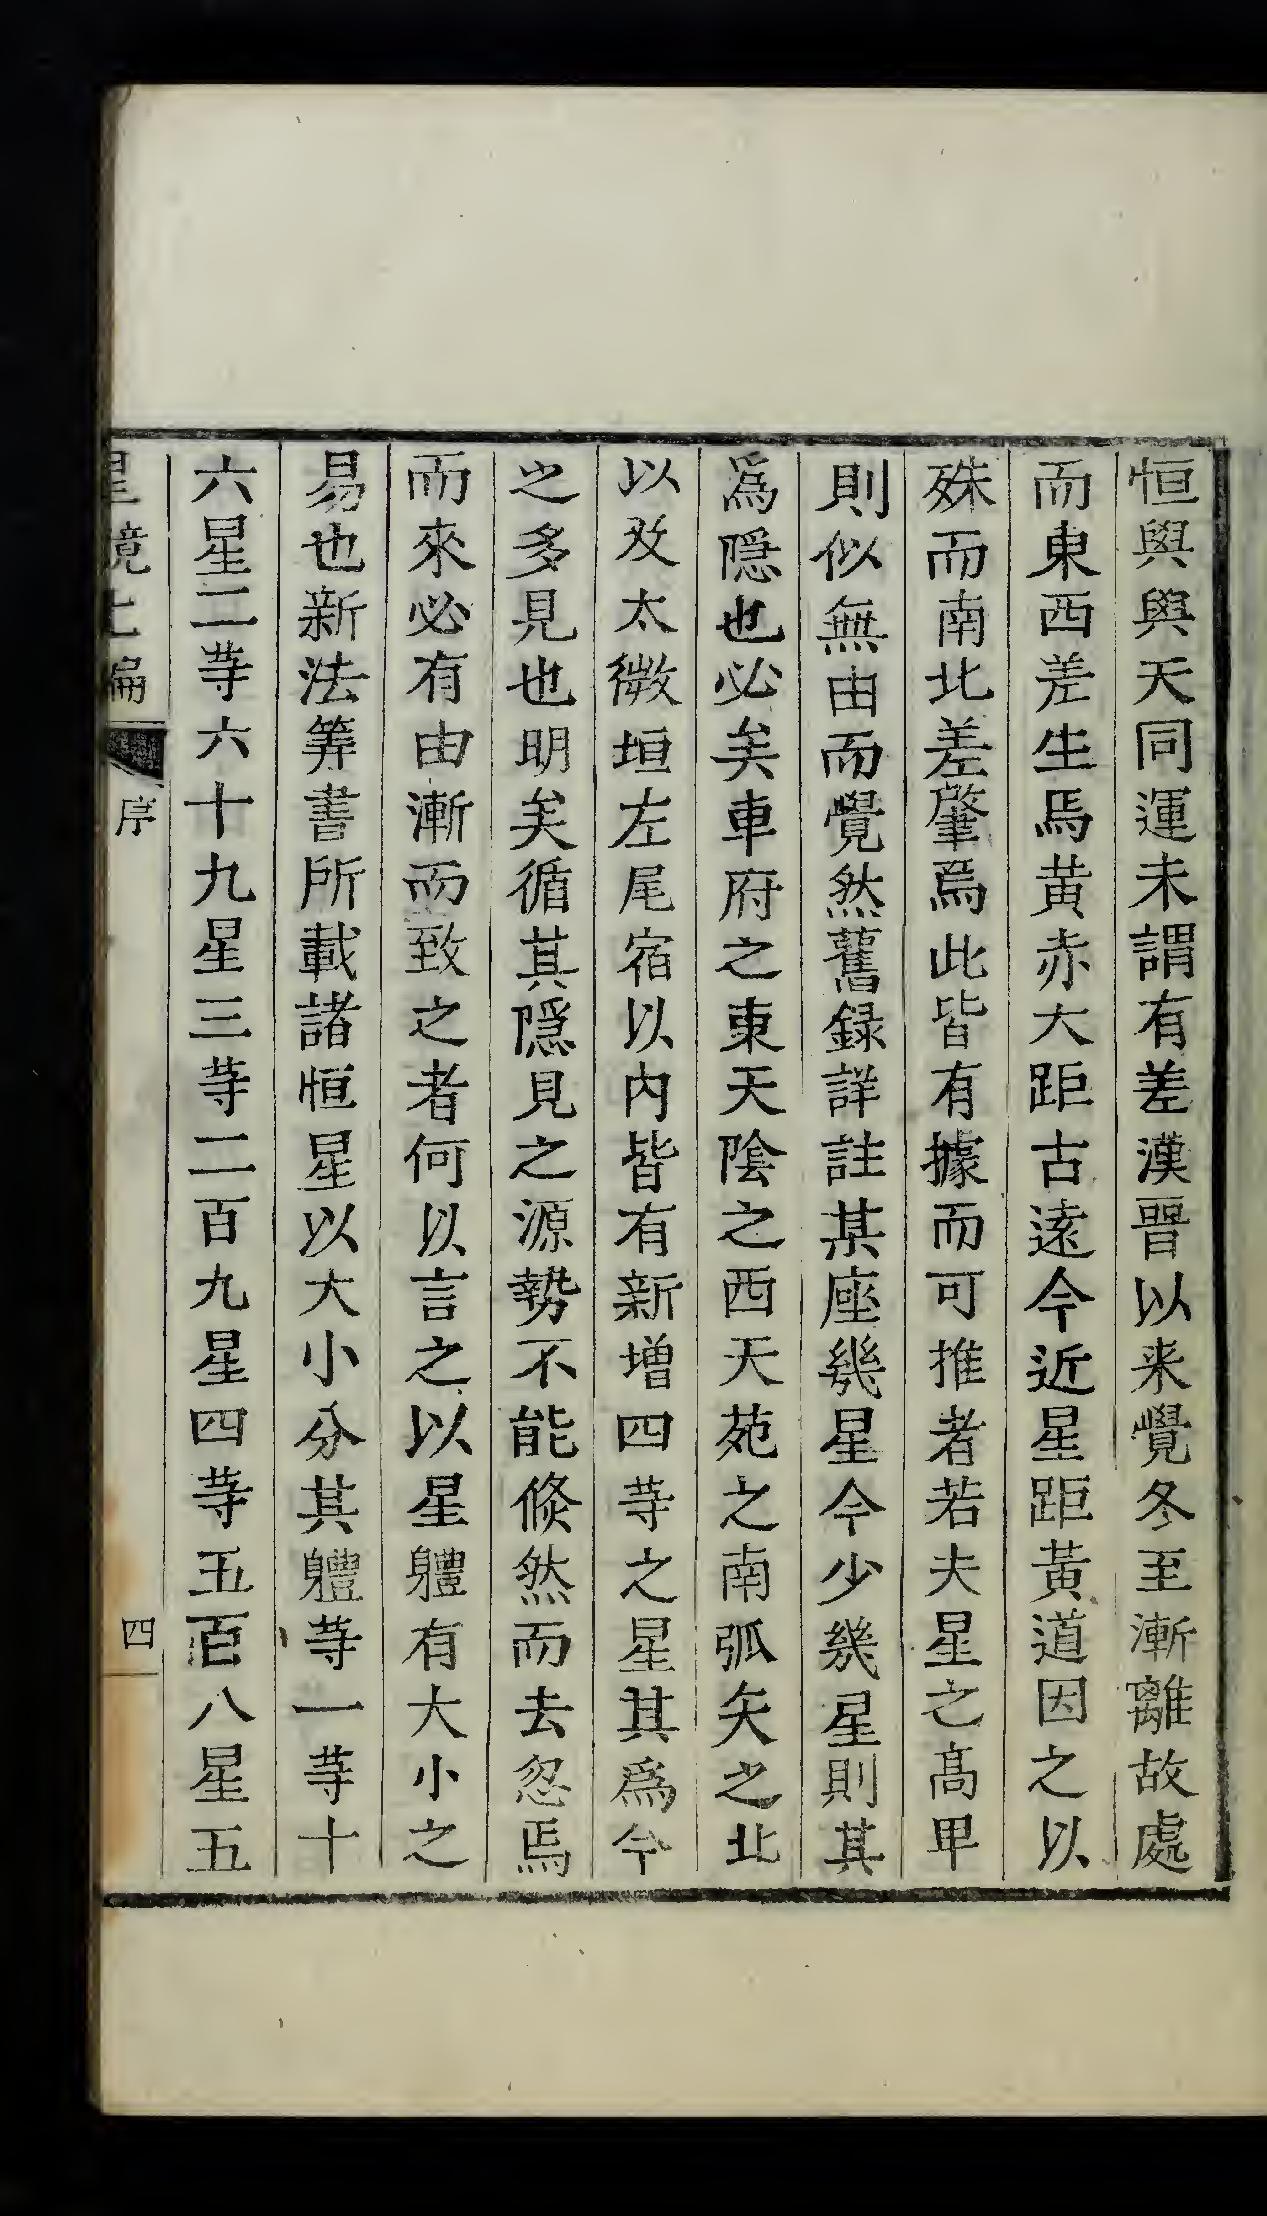 恒與與天同運未謂有差漢晉以来覺冬至漸離故處
而東西差生焉黃赤大距古遠今近星距黃道因之以
殊而南北差肇焉此皆有據而可推者若夫星之髙卑
則似無由而覺然舊録詳註某座幾星今少幾星則其
爲隱也必矣車府之東天陰之西天苑之南弧矢之北
以及太微垣左尾宿以内皆有新增四䓁之星其爲今
之多見也明矣循其隱見之源勢不能倐然而去忽焉
而來必有由漸而致之者何以言之以星軆有大小之
易也新法筭書所載諸恒星以大小分其軆䓁一䓁十
六星二䓁六十九星三䓁二百九星四䓁五百八星五
星鏡上編
序
四